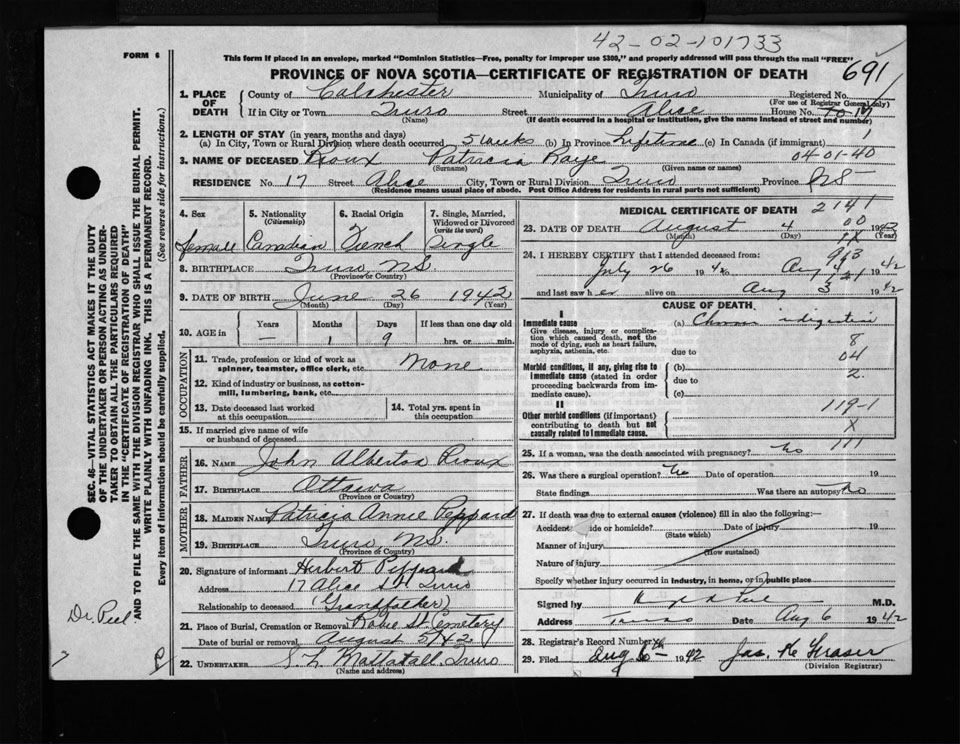 42-02-101733
FORM 6
This form if placed in an envelope, marked "Dominion Statistics—Free, penalty for improper use $300," and properly addressed will pass through the mail "FREE"
PROVINCE OF NOVA SCOTIA—CERTIFICATE OF REGISTRATION OF DEATH
691
1. PLACE OF DEATH
County of Colchester Municipality of Truro Registered No.
(For use of Registrar General only)
If in City or Town Truro Street Alice House No. 17
(Name) (If death occurred in a hospital or institution, give the name instead of street and number)
2. LENGTH OF STAY (in years, months and days)
(a) In City, Town or Rural Division where death occurred 5 weeks (b) In Province Lifetime (c) In Canada (if immigrant)
04-01-40
3. NAME OF DECEASED Rioux Patricia Kaye
(Surname) (Given name or names)
RESIDENCE No. 17 Street Alice City, Town or Rural Division Truro Province NS
(Residence means usual place of abode. Post Office Address for residents in rural parts not sufficient)
4. Sex
female
5. Nationality
(Citizenship)
Canadian
6. Racial Origin
French
7. Single, Married, Widowed or Divorced
(write the word)
Single
8. BIRTHPLACE Truro N.S.
(Province or Country)
9. DATE OF BIRTH June 26 1942
(Month) (Day) (Year)
10. AGE in Years Months Days If less than one day old
— 1 9 hrs. or min.
OCCUPATION
11. Trade, profession or kind of work as spinner, teamster, office clerk, etc. None
12. Kind of industry or business, as cotton-mill, lumbering, bank, etc.
13. Date deceased last worked at this occupation
14. Total yrs. spent in this occupation
15. If married give name of wife or husband of deceased
FATHER
16. NAME John Alberton Rioux
17. BIRTHPLACE Ottawa
(Province or Country)
MOTHER
18. MAIDEN NAME Patricia Annie Peppard
19. BIRTHPLACE Truro, N.S.
(Province or Country)
20. Signature of informant Herbert Peppard
Address 17 Alice St Truro
Relationship to deceased (Grandfather)
21. Place of Burial, Cremation or Removal Robie St. Cemetery
Date of burial or removal August 5/42
22. UNDERTAKER Mattatall, Truro
(Name and address)
MEDICAL CERTIFICATE OF DEATH 2141
23. DATE OF DEATH August 4 1942
(Month) (Day) (Year)
00
1X
24. I HEREBY CERTIFY that I attended deceased from:
963
July 26 1942 Aug 4 1942
and last saw her alive on Aug 3 1942
CAUSE OF DEATH
I
Immediate cause
Give disease, injury or complication which caused death, not the mode of dying, such as heart failure, asphyxia, asthenia, etc.
(a) Chronic indigestion
due to
8
04
Morbid conditions, if any, giving rise to immediate cause (stated in order proceeding backwards from immediate cause).
(b)
due to
2
(c)
II
Other morbid conditions (if important) contributing to death but not causally related to immediate cause.
119-1
X
111
25. If a woman, was the death associated with pregnancy? no
26. Was there a surgical operation? no Date of operation 19
State findings Was there an autopsy? no
27. If death was due to external causes (violence) fill in also the following:
Accident ide or homicide? Date of injury 19
(State which)
Manner of injury
(How sustained)
Nature of injury
Specify whether injury occurred in industry, in home, or in public place
Signed by M.D.
Address Truro Date Aug 6 1942
28. Registrar's Record Number
29. Filed Aug 1942 Jas. K Fraser
(Division Registrar)
SEC. 46—VITAL STATISTICS ACT MAKES IT THE DUTY
OF THE UNDERTAKER OR PERSON ACTING AS UNDER-
TAKER TO OBTAIN ALL THE PARTICULARS REQUIRED
IN THE "CERTIFICATE OF REGISTRATION OF DEATH"
AND TO FILE THE SAME WITH THE DIVISION REGISTRAR WHO SHALL ISSUE THE BURIAL PERMIT.
WRITE PLAINLY WITH UNFADING INK. THIS IS A PERMANENT RECORD.
Every item of information should be carefully supplied. (See reverse side for instructions.)
Dr. Peel